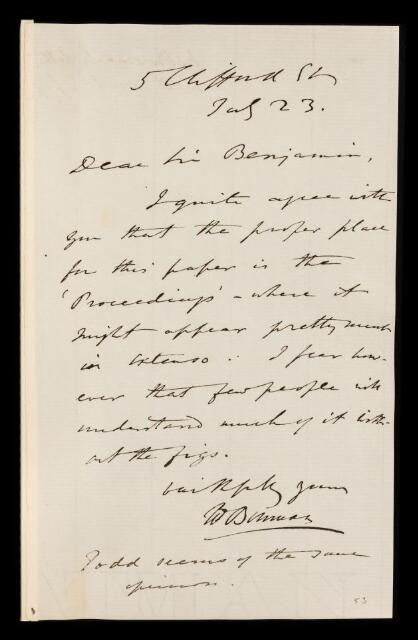 5 Clifford St
July 23.
Dear Sir Benjamin,
I quite agree with
you that the proper place
for this paper is the
'Proceedings' - where it
might appear pretty much
in extenso : I fear how-
ever that few people will
understand much of it with-
out the figs.
Faithfully yours
W Bowman
Todd seems of the same
opinion.
53